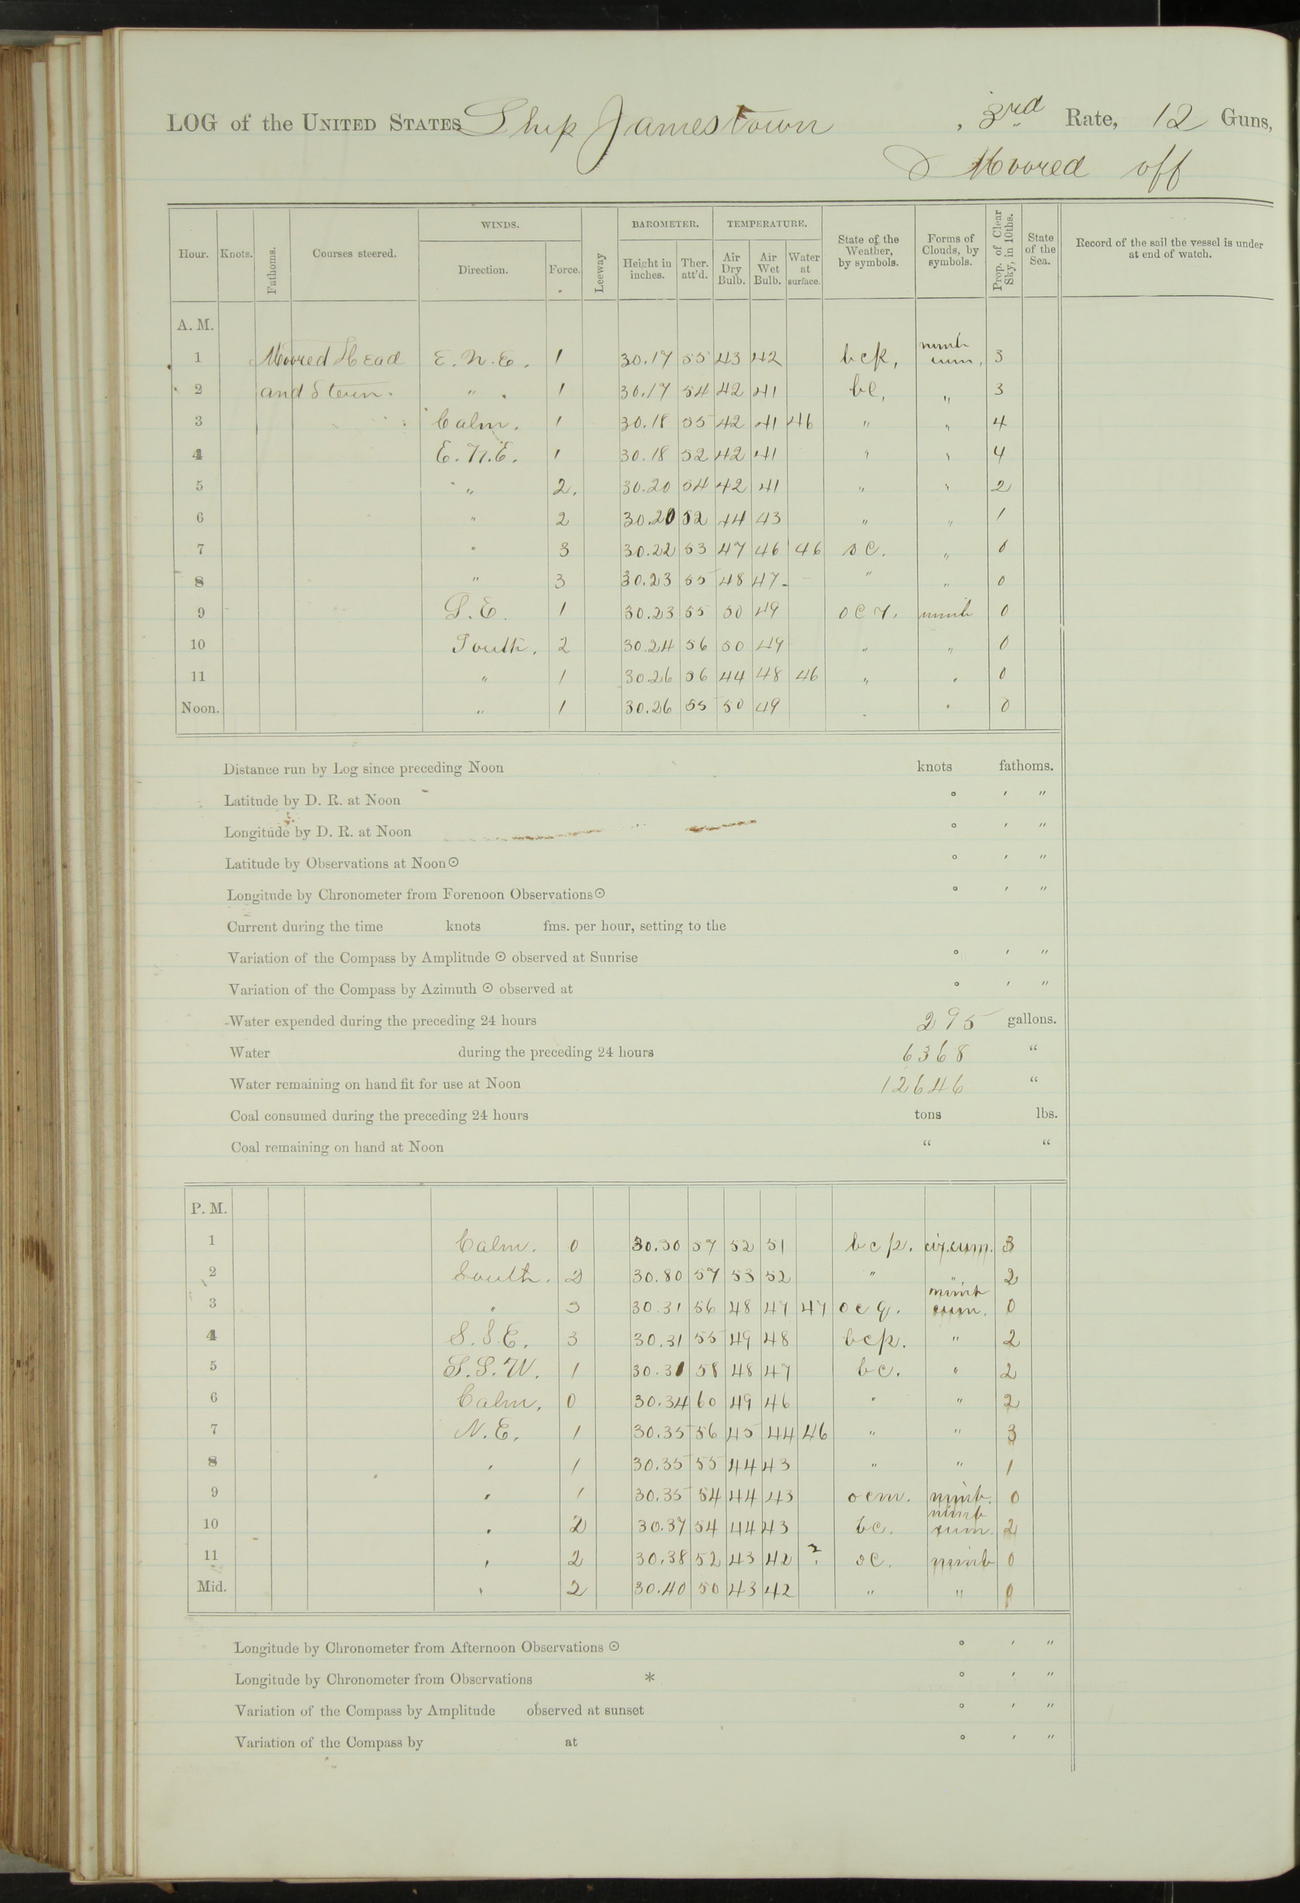 LOG of the UNITED STATES Ship Jamestown , 3rd Rate, 12 Guns,
Moored off
Hour. Knots. Fathoms. Courses steered. WINDS. Direction. Force. Leeway BAROMETER. Height in inches. Ther. att'd. TEMPERATURE. Air Dry Bulb. Air Wet Bulb. Water at surface. State of the Weather, by symbols. Forms of Clouds, by symbols. Prop. of Clear Sky, in 10ths. State of the Sea. Record of the sail the vessel is under at end of watch.
A. M.
1 Moored Head E.N.E. 1 30.17 55 43 42 bcp, nimb cum, 3
2 and Stern. " 1 30.17 54 42 41 bc, " 3
3 Calm. 1 30.18 55 42 41 46 " " 4
4 E.N.E. 1 30.18 52 42 41 " " 4
5 " 2. 30.20 54 42 41 " " 2
6 " 2 30.20 52 44 43 " " 1
7 " 3 30.22 53 47 46 46 oc. " 0
8 " 3 30.23 55 48 47 " " 0
9 S.E. 1 30.23 55 50 49 ocr. nimb 0
10 South. 2 30.24 56 50 49 " " 0
11 " 1 30.26 56 44 48 46 " " 0
Noon. " 1 30.26 55 50 49 " " 0
Distance run by Log since preceding Noon knots fathoms.
Latitude by D. R. at Noon ° ′ ″
Longitude by D. R. at Noon ° ′ ″
Latitude by Observations at Noon ☉ ° ′ ″
Longitude by Chronometer from Forenoon Observations ☉ ° ′ ″
Current during the time knots fms. per hour, setting to the
Variation of the Compass by Amplitude ☉ observed at Sunrise ° ′ ″
Variation of the Compass by Azimuth ☉ observed at ° ′ ″
Water expended during the preceding 24 hours 295 gallons.
Water during the preceding 24 hours 6368 “
Water remaining on hand fit for use at Noon 12646 “
Coal consumed during the preceding 24 hours tons lbs.
Coal remaining on hand at Noon “ “
P. M.
1 Calm. 0 30.30 57 52 51 bcp. cir.cum. 3
2 South. 2 30.30 57 53 52 " " 2
3 " 3 30.31 56 48 47 47 ocq. nimb cum. 0
4 S.S.E. 3 30.31 55 49 48 bcp. " 2
5 S.S.W. 1 30.31 58 48 47 bc. " 2
6 Calm. 0 30.34 60 49 46 " " 2
7 N.E. 1 30.35 56 45 44 46 " " 3
8 " 1 30.35 55 44 43 " " 1
9 " 1 30.35 54 44 43 ocm. nimb. 0
10 " 2 30.37 54 44 43 bc. nimb cum. 2
11 " 2 30.38 52 43 42 ? oc. nimb 0
Mid. " 2 30.40 50 43 42 " " 0
Longitude by Chronometer from Afternoon Observations ☉ ° ′ ″
Longitude by Chronometer from Observations * ° ′ ″
Variation of the Compass by Amplitude observed at sunset ° ′ ″
Variation of the Compass by at ° ′ ″